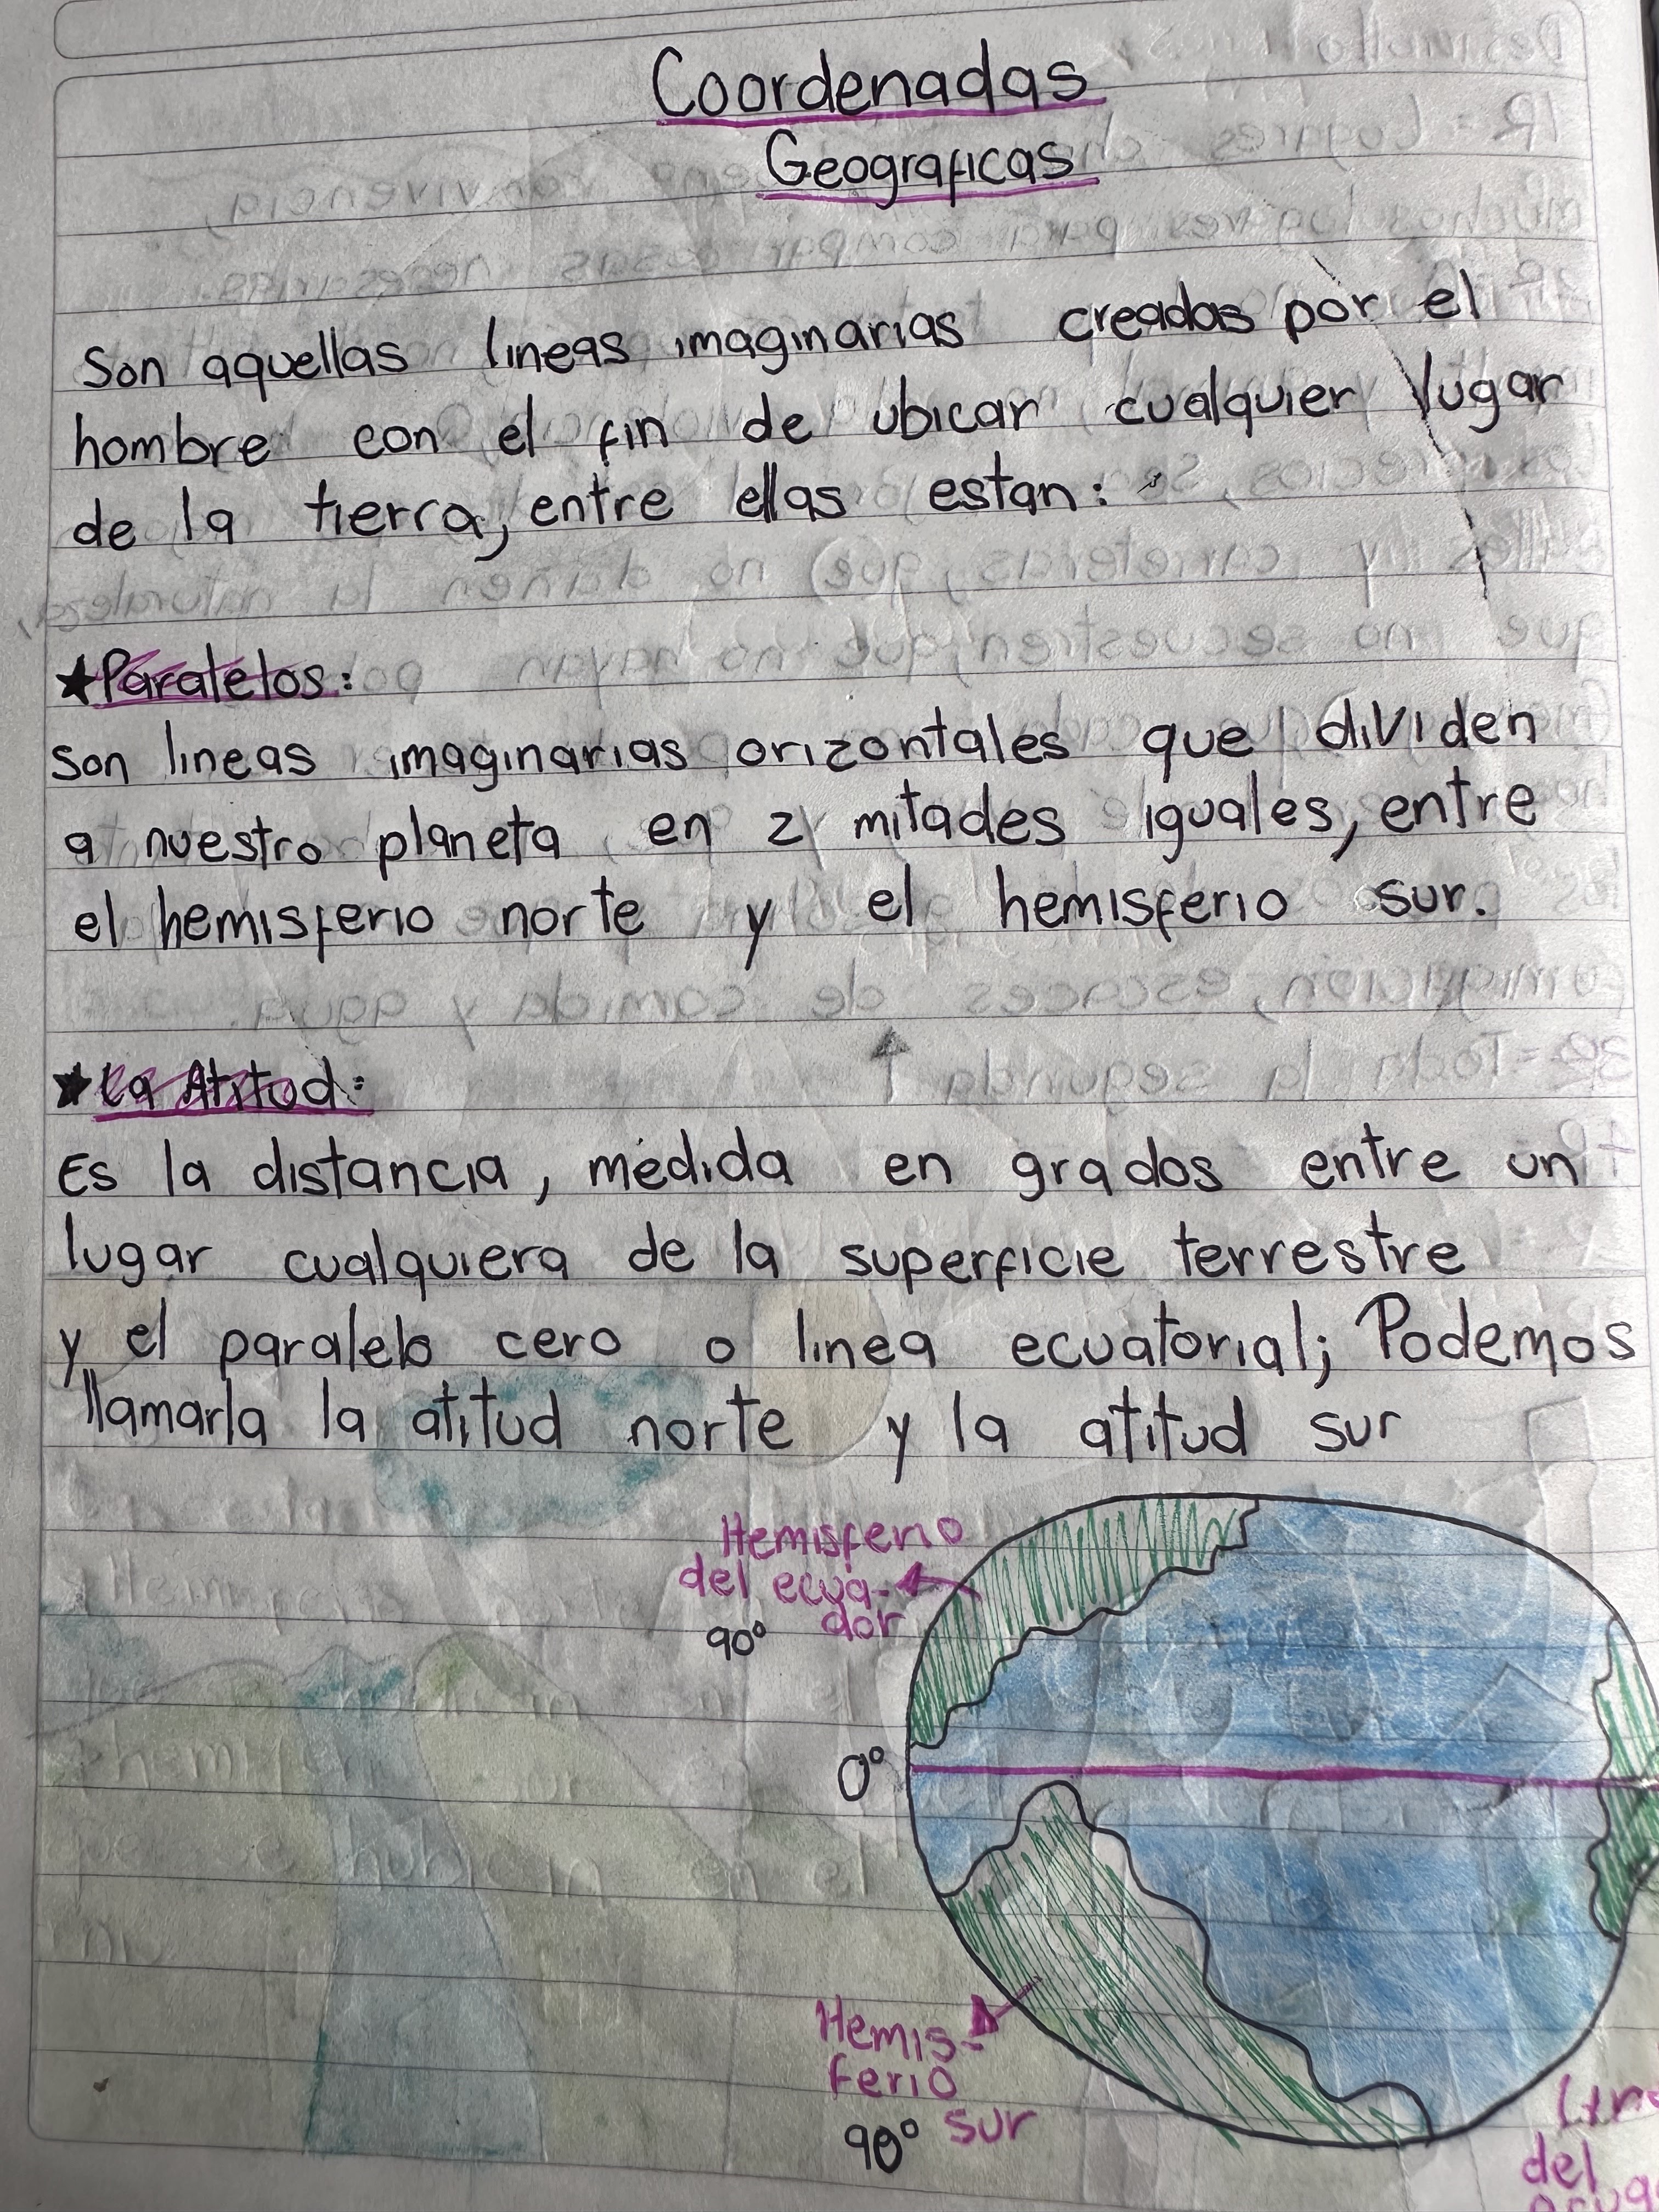 Coordenadas
Geograficas
Son aquellas lineas imaginarias creadas por el
hombre con el fin de ubicar cualquier lugar
de la tierra, entre ellas estan:
★Paralelos:
Son lineas imaginarias orizontales que dividen
a nuestro planeta en 2 mitades iguales, entre
el hemisferio norte y el hemisferio sur.
★La Atitud:
Es la distancia, medida en grados entre un
lugar cualquiera de la superficie terrestre
y el paralelo cero o linea ecuatorial; Podemos
llamarla la atitud norte y la atitud sur
Hemisferio
del ecua-
dor
90°
0°
Hemis-
ferio
sur
90°
del